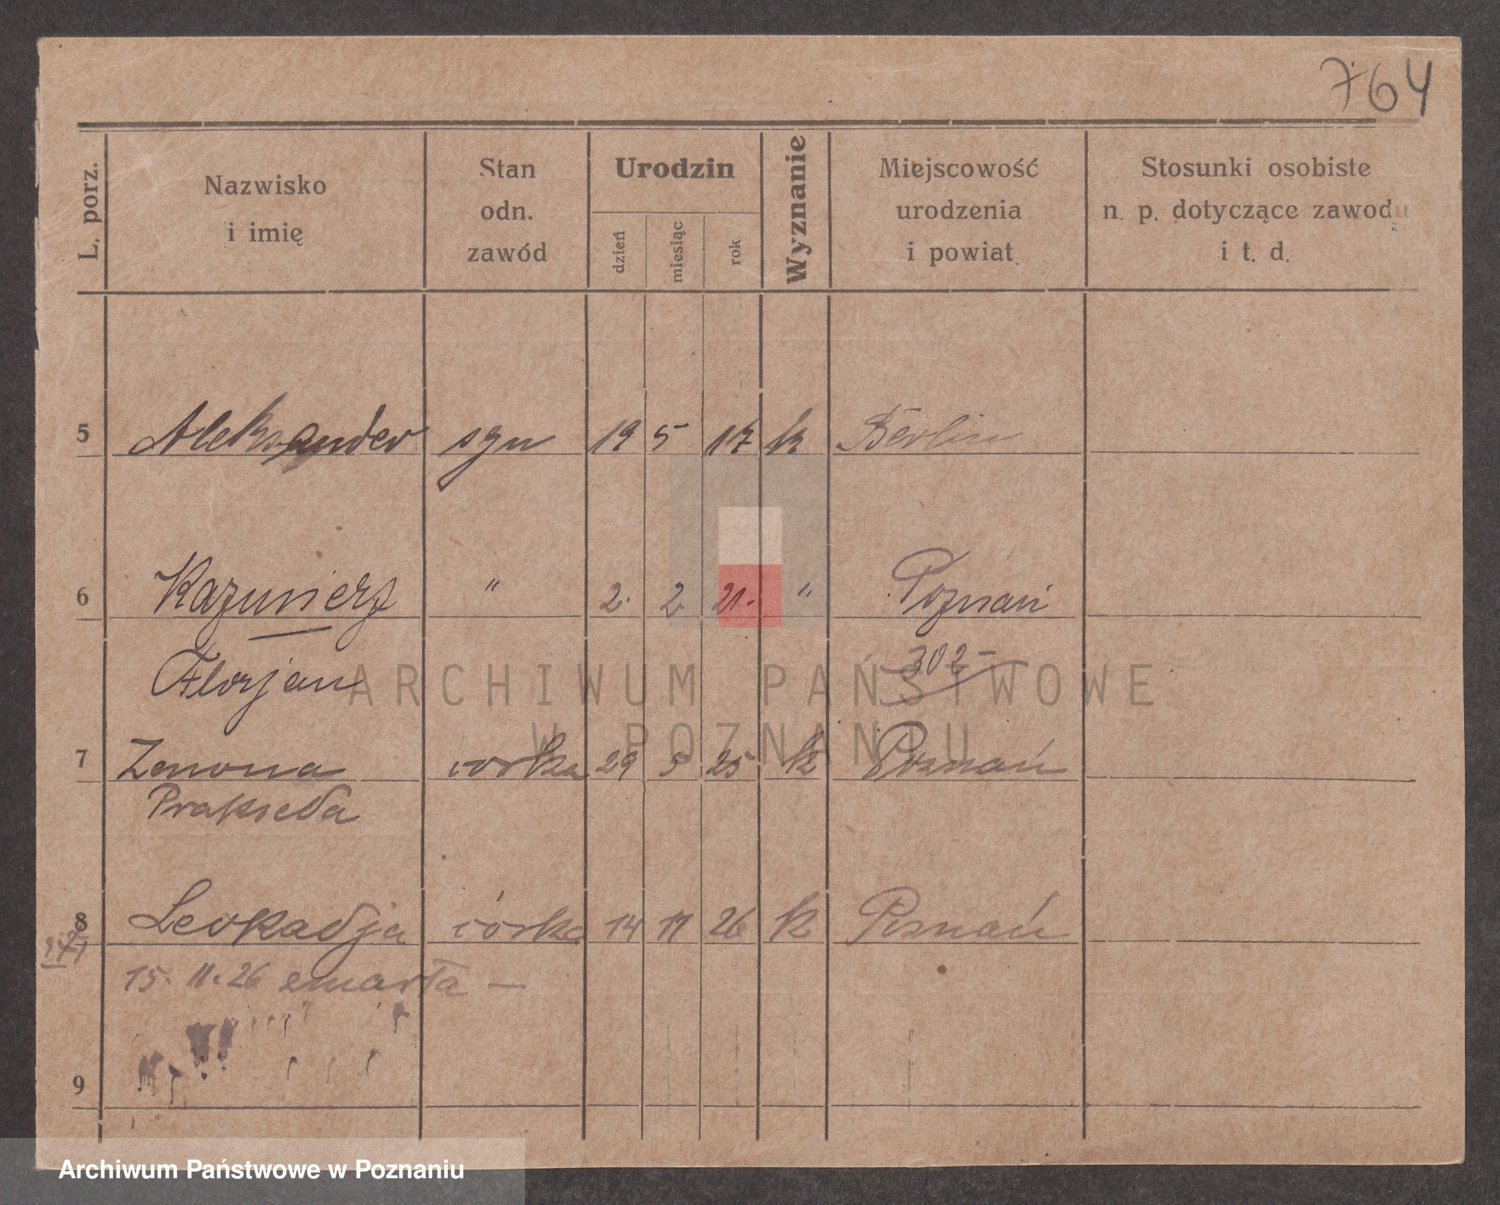 764
L. porz.
Nazwisko i imię
Stan odn. zawód
Urodzin
dzień
miesiąc
rok
Wyznanie
Miejscowość urodzenia i powiat
Stosunki osobiste n. p. dotyczące zawodu i t. d.
5 Aleksander syn 19 5 17 k Berlin
6 Kazimierz " 2. 2. 21. " Poznań
Florjan 302-
7 Zenona córka 29 5 25 k Poznań
Prakseda
8 Leokadja córka 14 11 26 k Poznań
15. 11. 26 zmarła —
9
ARCHIWUM PAŃSTWOWE
W POZNANIU
Archiwum Państwowe w Poznaniu